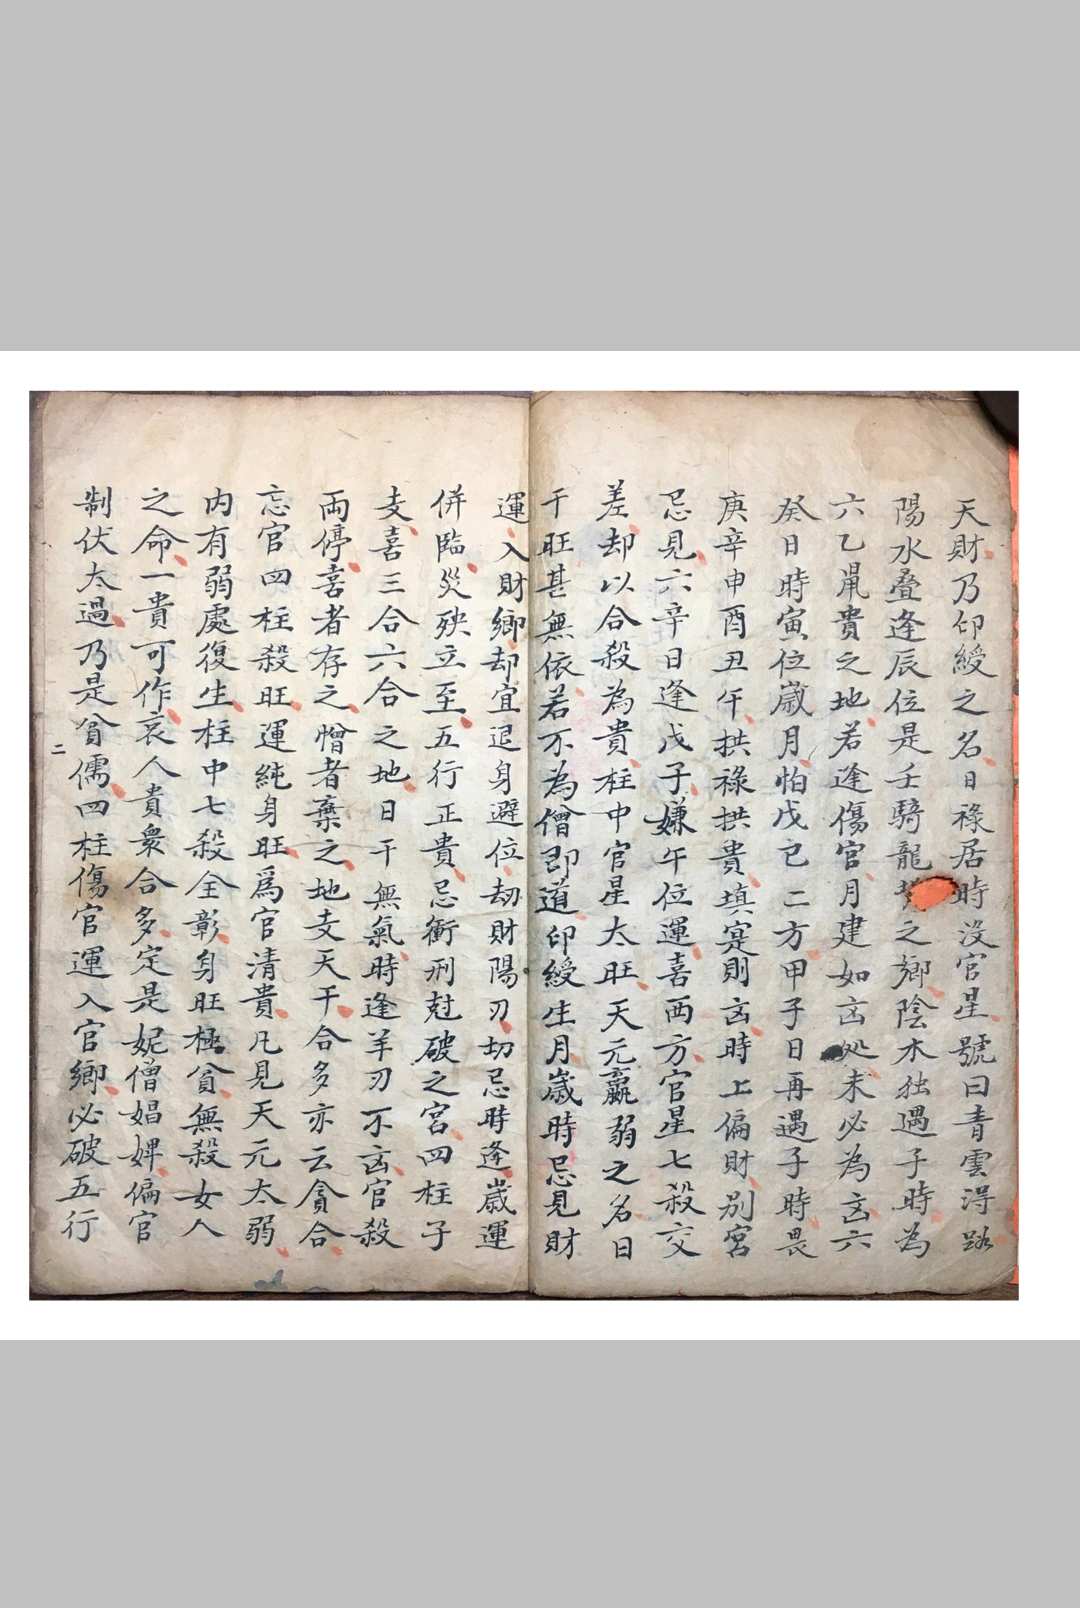 天財乃印綬之名日祿居時没官星號曰青雲淂路
陽水叠逢辰位是壬騎龍背之鄉陰木独遇子時為
六乙鼠貴之地若逢傷官月建如凶处未必為凶六
癸日時寅位歲月怕戊己二方甲子日再遇子時畏
庚辛申酉丑午拱祿拱貴填寔則凶時上偏財别宮
忌見六辛日逢戊子嫌午位運喜西方官星七殺交
差却以合殺為貴柱中官星太旺天元羸弱之名日
干旺甚無依若不為僧即道印綬生月歲時忌見財
運入財鄉却宜退身避位刼財陽刃切忌時逢歲運
併臨災殃立至五行正貴忌衝刑尅破之宮四柱子
支喜三合六合之地日干無氣時逢羊刃不凶官殺
両停喜者存之憎者棄之地支天干合多亦云貪合
忘官四柱殺旺運純身旺爲官清貴凡見天元太弱
内有弱處復生柱中七殺全彰身旺極貧無殺女人
之命一貴可作哀人貴衆合多定是妮僧娼婢偏官
制伏太過乃是貧儒四柱傷官運入官鄉必破五行
二